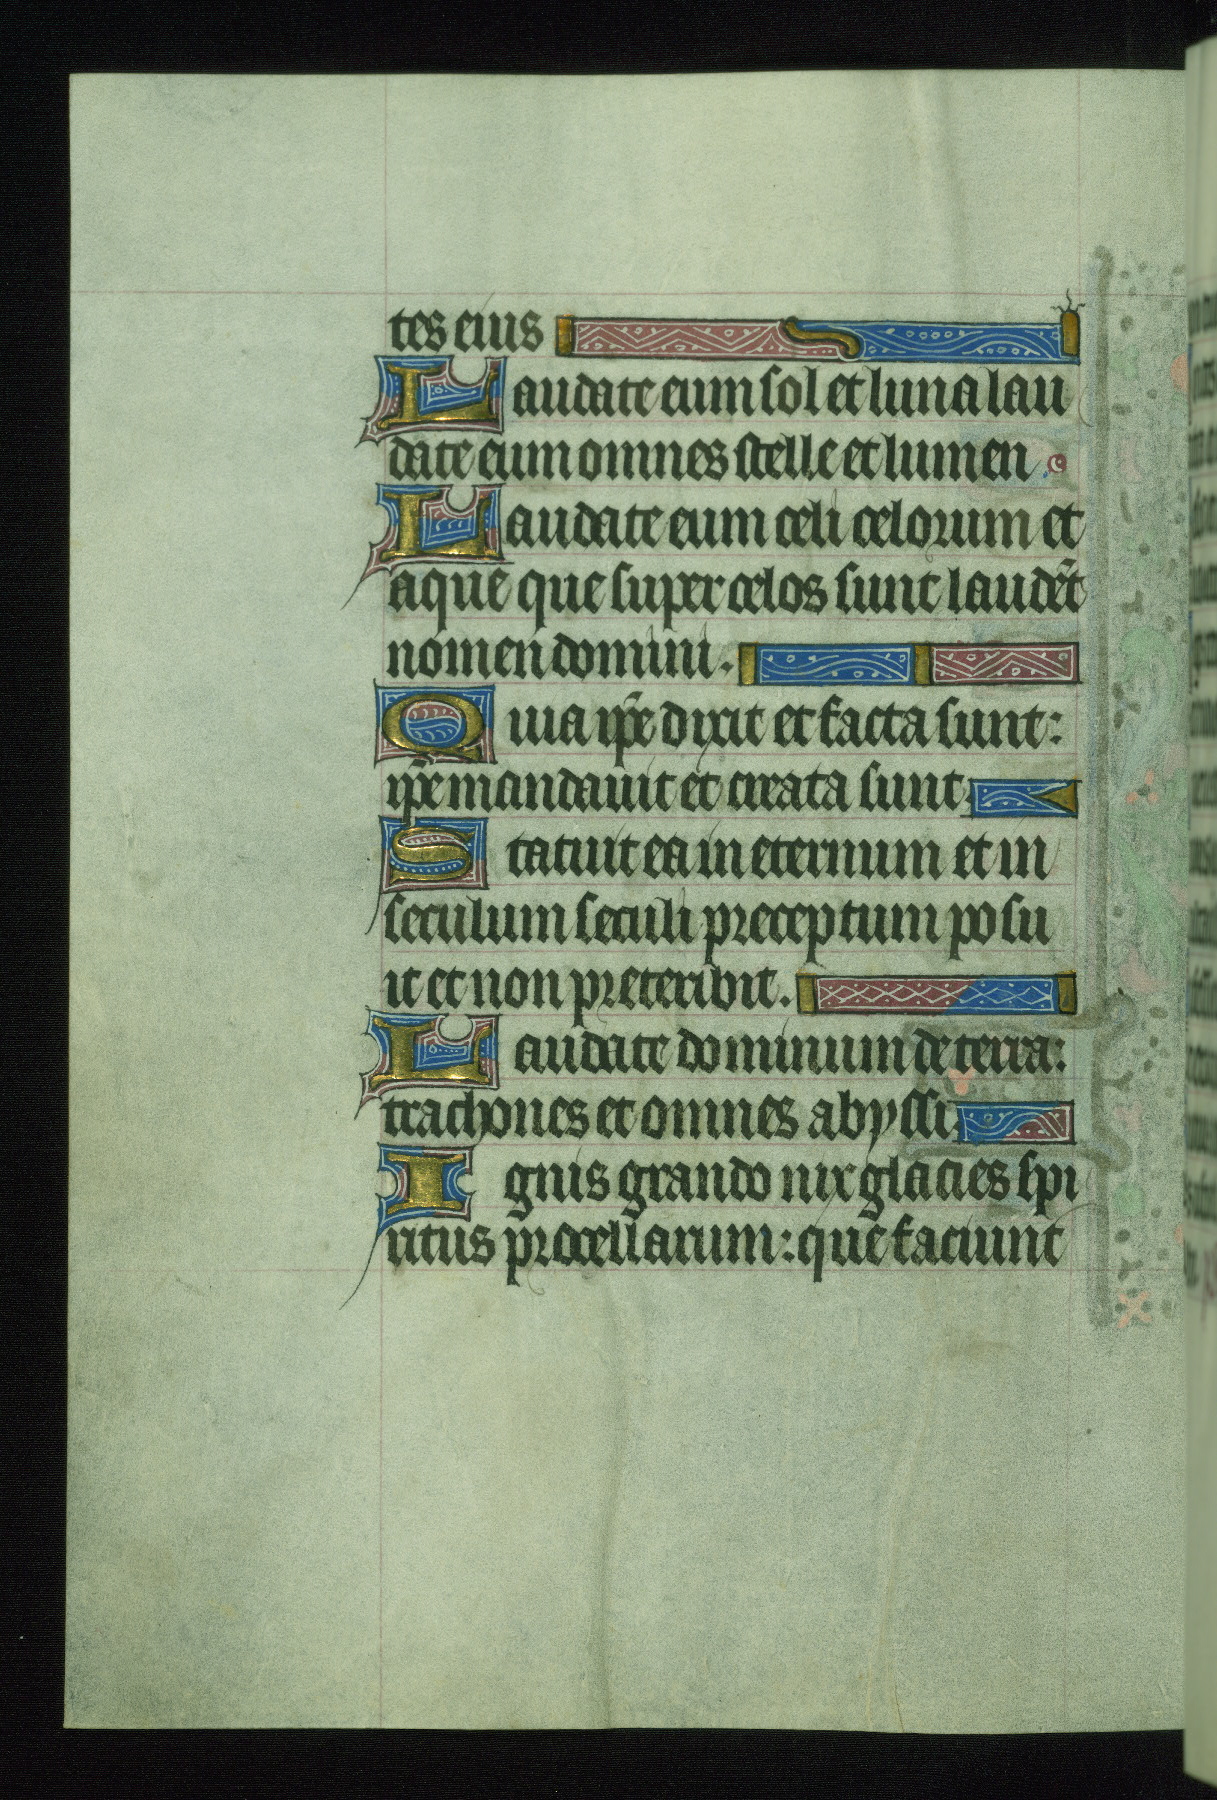 tes eius
Laudate eum sol et luna lau
date eum omnes stelle et lumen
Laudate eum celi celorum et
aque que super celos sunt laudēt
nomen domini.
Quia ip̄e dixit et facta sunt:
ip̄e mandauit et creata sunt.
Statuit ea in eternum et in
seculum seculi preceptum posu
it et non preteribit.
Laudate dominum de terra:
trachones et omnes abyssi.
Ignis grando nix glacies spi
ritus procellarum: que faciunt